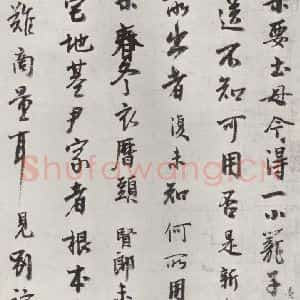 要土母今得一小籠子
送不知可用否是新
出者復未知何所用
春冬衣曆頭賢郎未
宅地基尹家者根本
難商量耳見劉
Shufawang.CN